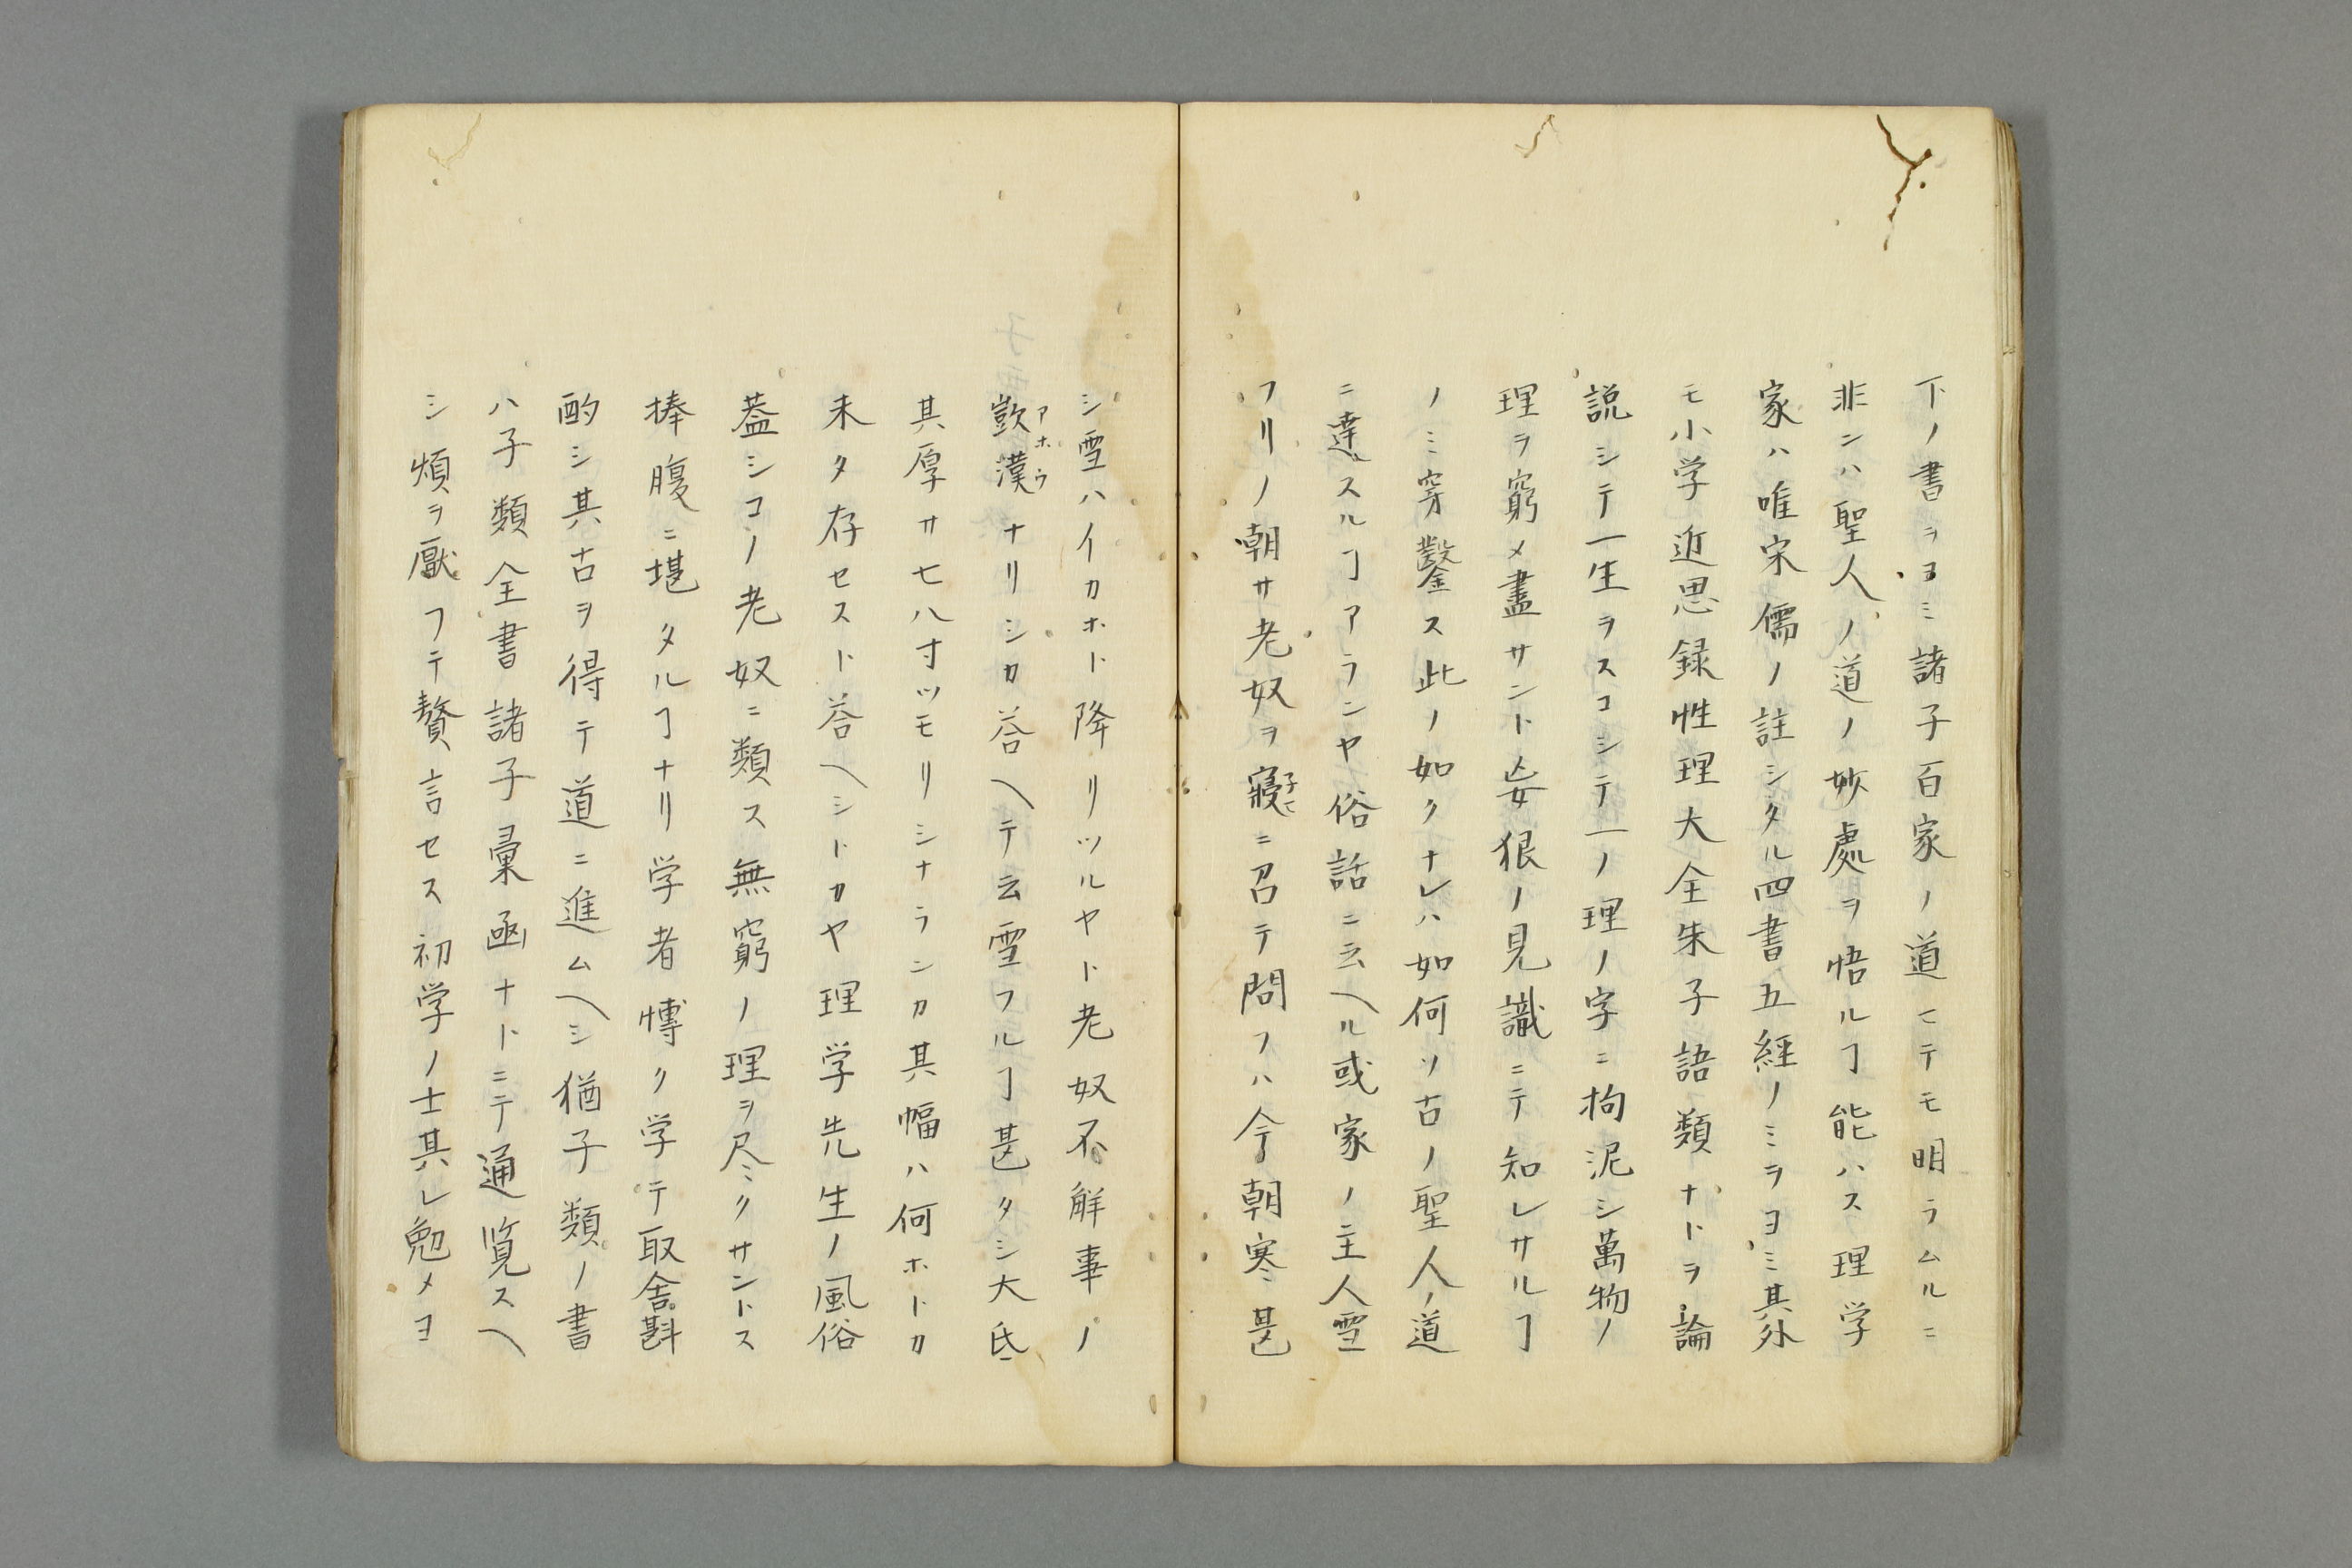 下ノ書ヲヨミ諸子百家ノ道ヒテモ明ラムルニ
非ンハ聖人ノ道ノ妙處ヲ悟ルヿ能ハス理学
家ハ唯宋儒ノ註シタル四書五經ノミヲヨミ其外
モ小学近思録性理大全朱子語類ナドヲ論
説シテ一生ヲスコシテ一ノ理ノ字ニ拘泥シ萬物ノ
理ヲ窮メ盡サント妄狠ノ見識ニテ知レサルヿ
ノミ穿鑿ス此ノ如クナレハ如何ソ古ノ聖人ノ道
ニ達スルヿアランヤ俗話ニ云ヘル或家ノ主人雪
フリノ朝サ老奴ヲ寢ニ召テ問フハ今朝寒甚
シ雪ハイカホト降リツルヤト老奴不解事ノ
歎漢アホウナリシカ荅ヘテ云雪フルヿ甚タシ大氐
其厚サ七八寸ツモリシナランカ其幅ハ何ホトカ
未タ存セスト荅ヘシトカヤ理学先生ノ風俗
蓋シコノ老奴ニ類ス無窮ノ理ヲ尽クサントス
捧腹ニ堪タルヿナリ学者博ク学テ取舍斟
酌シ其古ヲ得テ道ニ進ムヘシ猶子類ノ書
ハ子類全書諸子彙函ナトニテ通覧スヘ
シ煩ヲ厭フテ贅言セス初学ノ士其レ勉メヨ